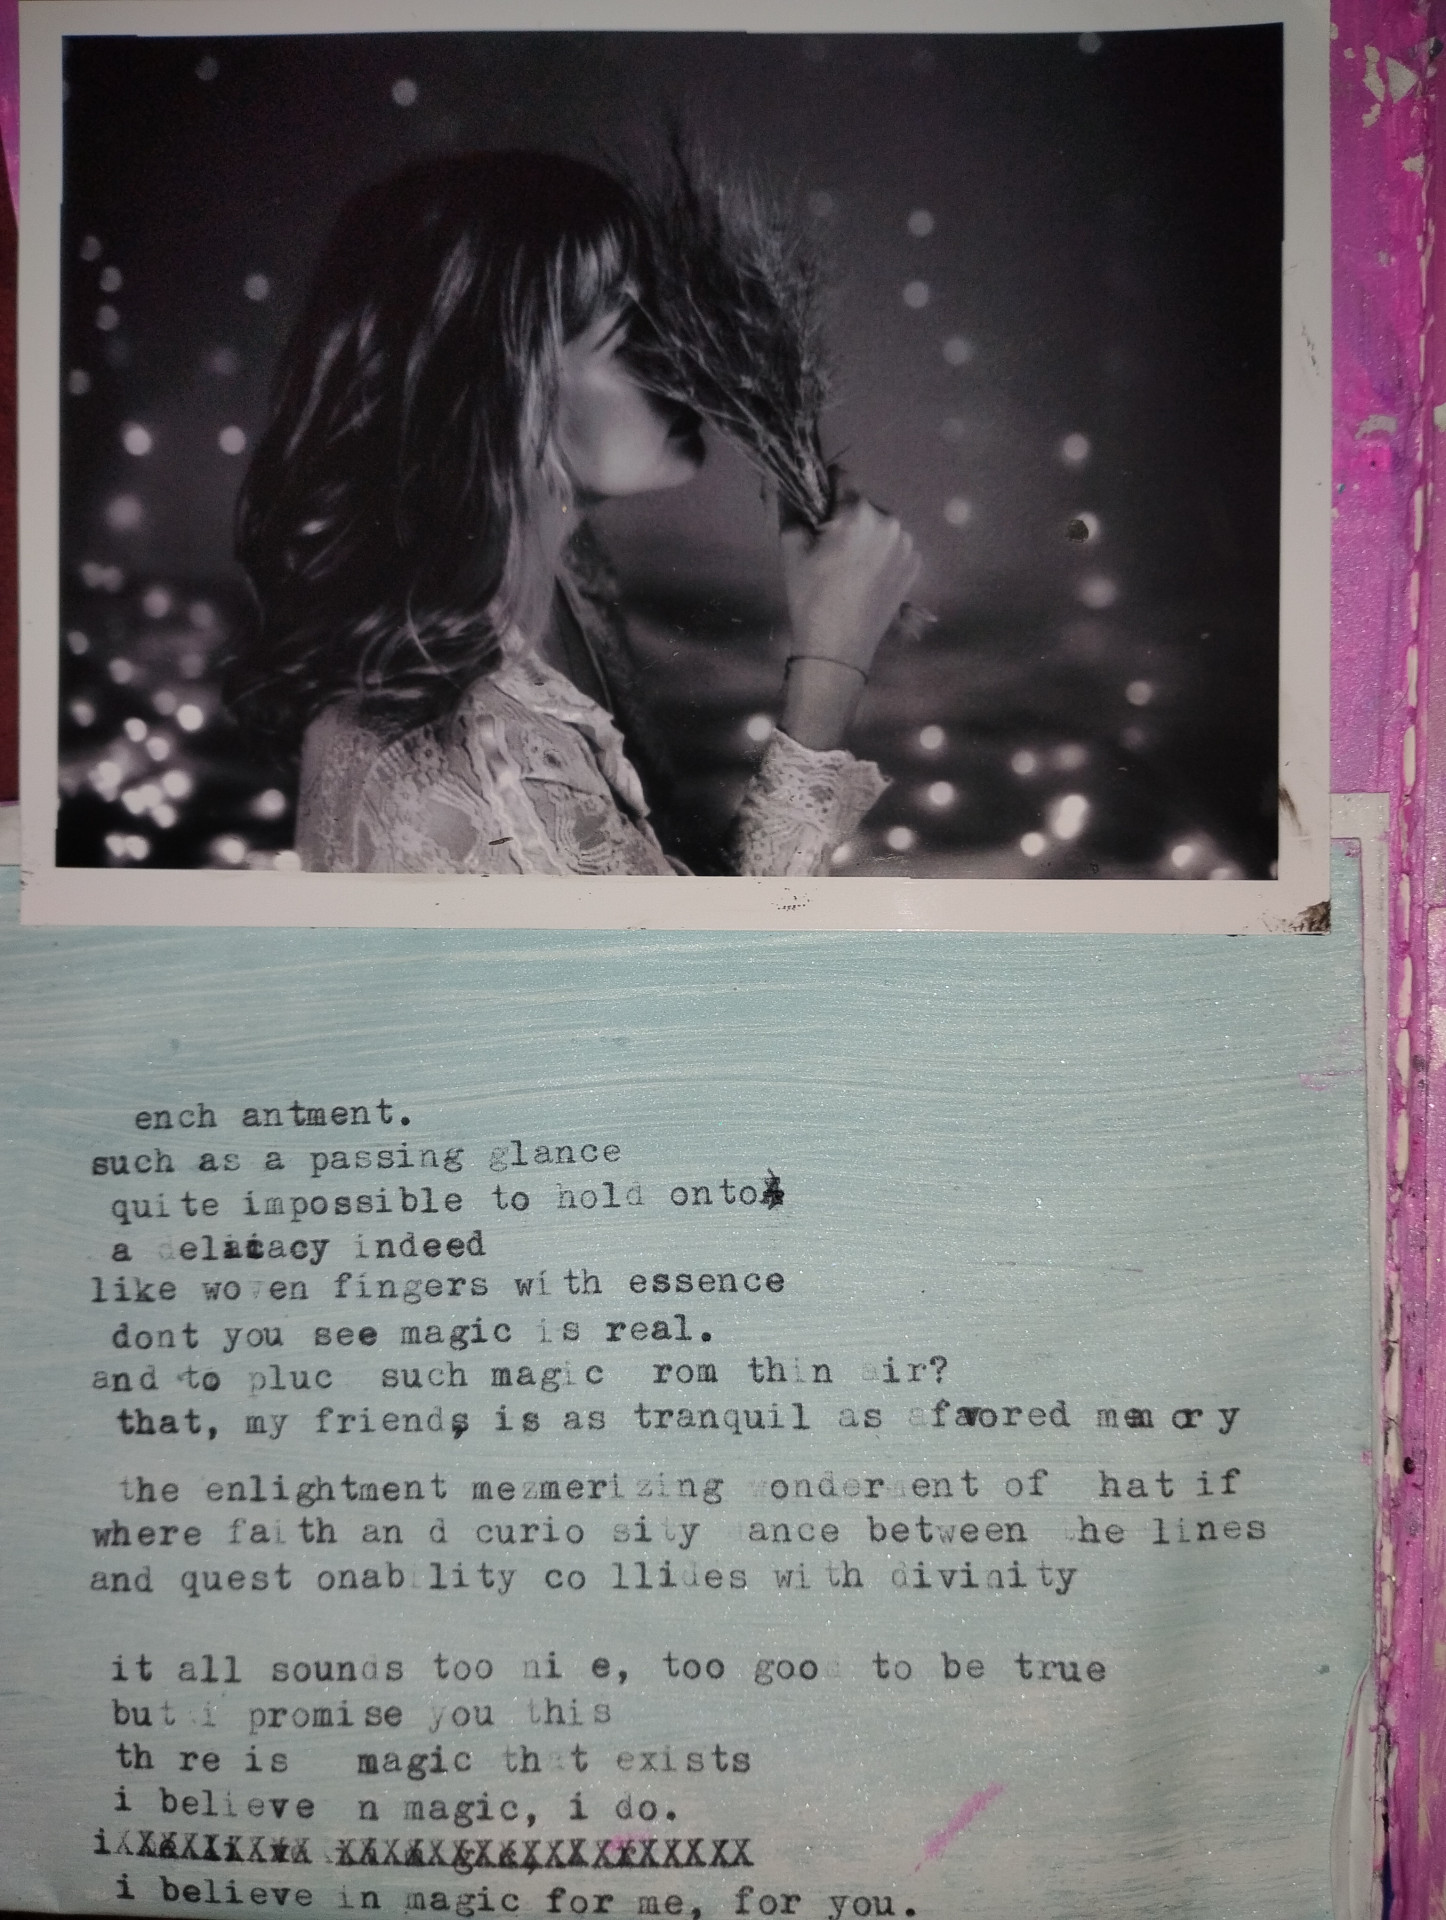 ench antment.
such as a passing glance
quite impossible to hold onto
a delicacy indeed
like woven fingers with essence
dont you see magic is real.
and to pluc such magic rom thin air?
that, my friends, is as tranquil as a favored memory
the enlightment mezmerizing wonderment of hat if
where faith an d curio sity dance between the lines
and quest onability co llides with divinity
it all sounds too ni e, too good to be true
but i promise you this
th re is magic that exists
i believe n magic, i do.
i
i believe in magic for me, for you.